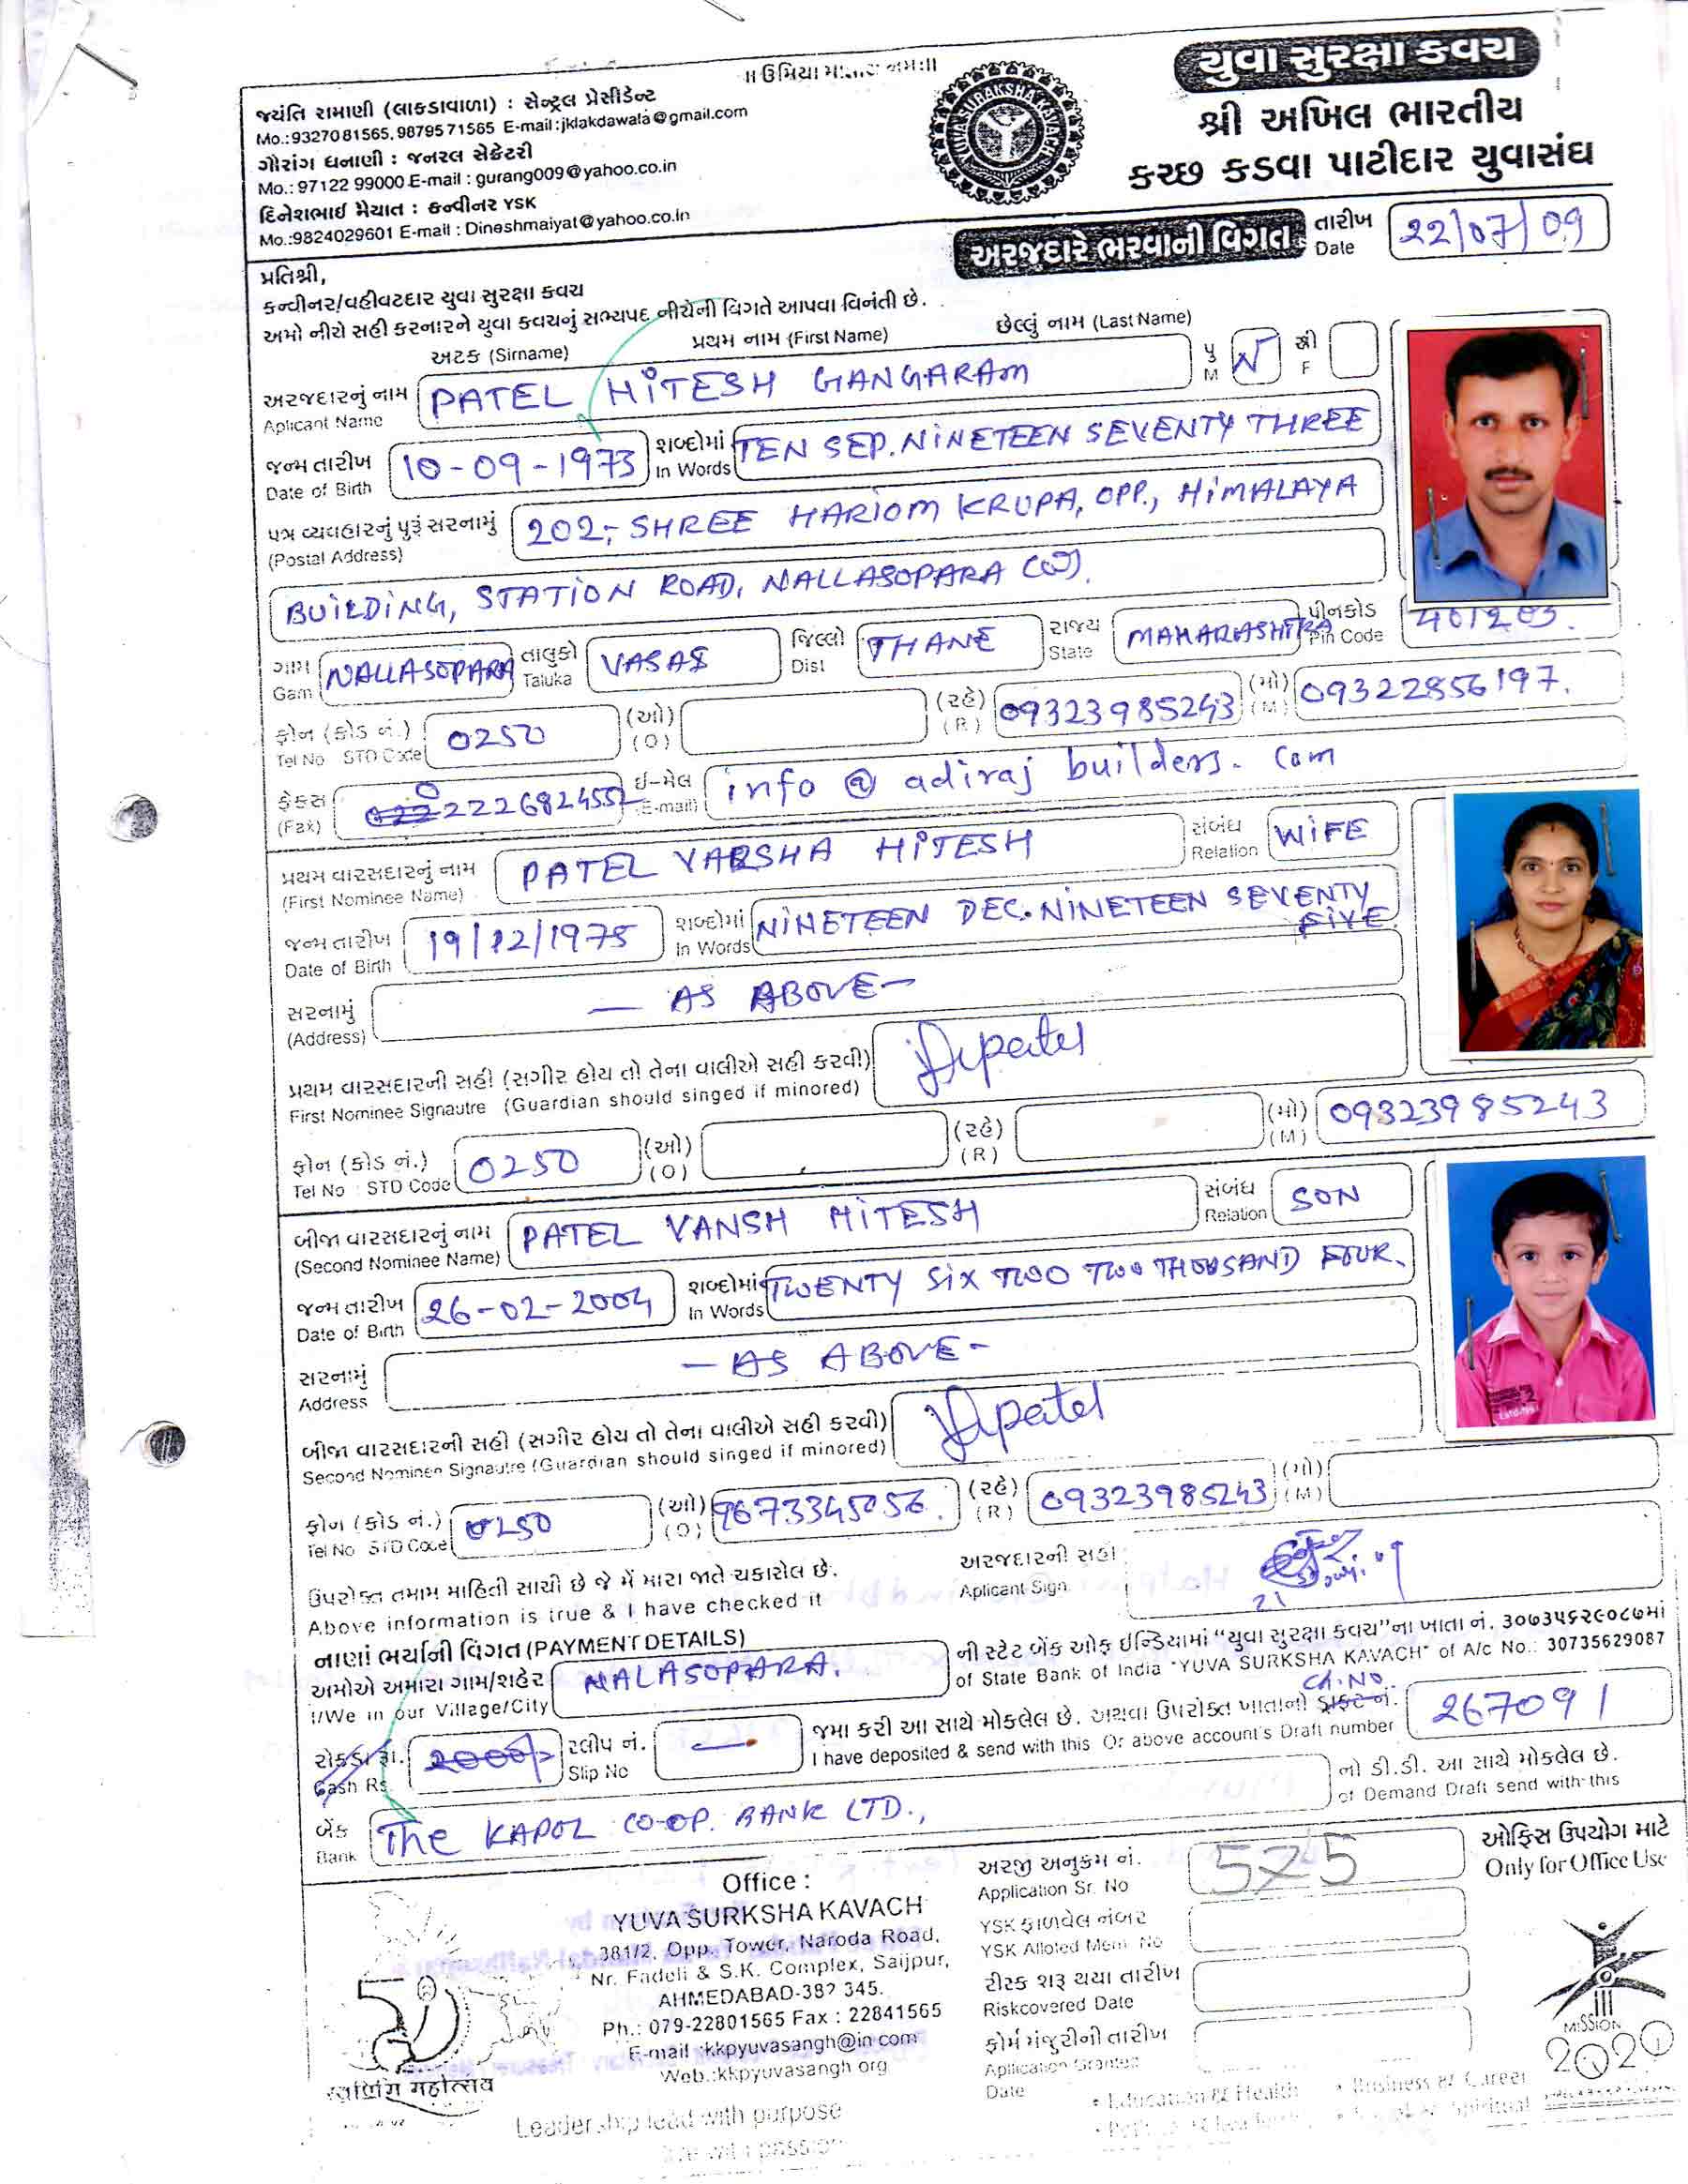 ॥ ઉમિયા માતાય નમઃ॥
યુવા સુરક્ષા કવચ
શ્રી અખિલ ભારતીય
કચ્છ કડવા પાટીદાર યુવાસંઘ
YUVA SURAKSHA KAVACH
જયંતિ રામાણી (લાકડાવાળા) : સેન્ટ્રલ પ્રેસીડેન્ટ
Mo.:9327081565,9879571565 E-mail:jklakdawala@gmail.com
ગૌરાંગ ધનાણી : જનરલ સેક્રેટરી
Mo.: 97122 99000 E-mail : gurang009@yahoo.co.in
દિનેશભાઈ મૈયાત : કન્વીનર YSK
Mo.:9824029601 E-mail : Dineshmaiyat@yahoo.co.in
અરજદારે ભરવાની વિગત તારીખ Date 22/07/09
પ્રતિશ્રી,
કન્વીનર/વહીવટદાર યુવા સુરક્ષા કવચ
અમો નીચે સહી કરનારને યુવા કવચનું સભ્યપદ નીચેની વિગતે આપવા વિનંતી છે.
અટક (Sirname) પ્રથમ નામ (First Name) છેલ્લું નામ (Last Name)
અરજદારનું નામ Aplicant Name PATEL HITESH GANGARAM પુ M સ્ત્રી F
જન્મ તારીખ Date of Birth 10-09-1973 શબ્દોમાં In Words TEN SEP. NINETEEN SEVENTY THREE
પત્ર વ્યવહારનું પુરૂં સરનામું (Postal Address) 202, SHREE HARIOM KRUPA, OPP., HIMALAYA
BUILDING, STATION ROAD, NALLASOPARA (W).
ગામ Gam NALLASOPARA તાલુકો Taluka VASAI જિલ્લો Dist THANE રાજ્ય State MAHARASHTRA પીનકોડ Pin Code 401203.
ફોન (કોડ નં.) Tel No STD Code 0250 (ઓ) (O) (રહે) (R) 09323985243 (મો) (M) 09322856197.
ફેક્સ (Fax) 02222682455 ઈ-મેલ (E-mail) info @ adiraj builders. com
પ્રથમ વારસદારનું નામ (First Nominee Name) PATEL VARSHA HITESH સંબંધ Relation WIFE
જન્મ તારીખ Date of Birth 19/12/1975 શબ્દોમાં In Words NINETEEN DEC. NINETEEN SEVENTY FIVE
સરનામું (Address) — AS ABOVE —
પ્રથમ વારસદારની સહી (સગીર હોય તો તેના વાલીએ સહી કરવી)
First Nominee Signautre (Guardian should singed if minored)
ફોન (કોડ નં.) Tel No : STD Code 0250 (ઓ) (O) (રહે) (R) (મો) (M) 09323985243
બીજા વારસદારનું નામ (Second Nominee Name) PATEL VANSH HITESH સંબંધ Relation SON
જન્મ તારીખ Date of Birth 26-02-2004 શબ્દોમાં In Words TWENTY SIX TWO TWO THOUSAND FOUR.
સરનામું Address — AS ABOVE —
બીજા વારસદારની સહી (સગીર હોય તો તેના વાલીએ સહી કરવી)
Second Nominee Signautre (Guardian should singed if minored)
ફોન (કોડ નં.) Tel No STD Code 0250 (ઓ) (O) 9673345056. (રહે) (R) 09323985243 (મો) (M)
ઉપરોક્ત તમામ માહિતી સાચી છે જે મેં મારા જાતે ચકારોલ છે. અરજદારની સહી
Above information is true & I have checked it Aplicant Sign
નાણાં ભર્યાની વિગત (PAYMENT DETAILS)
અમોએ અમારા ગામ/શહેર I/We in our Village/City NALASOPARA. ની સ્ટેટ બેંક ઓફ ઈન્ડિયામાં "યુવા સુરક્ષા કવચ"ના ખાતા નં. ૩૦૭૩૫૬૨૯૦૮૭માં
of State Bank of India "YUVA SURKSHA KAVACH" of A/c No.: 30735629087
Ch. NO.
રોકડા રૂા. Cash Rs. 2000/- સ્લીપ નં. Slip No — જમા કરી આ સાથે મોકલેલ છે. અથવા ઉપરોક્ત ખાતાનો ડ્રાફ્ટ નં. 267091
I have deposited & send with this Or above account's Draft number
નો ડી.ડી. આ સાથે મોકલેલ છે.
of Demand Draft send with this
બેંક Bank The KAPOL CO-OP. BANK LTD.,
Office :
YUVA SURKSHA KAVACH
381/2, Opp. Tower, Naroda Road,
Nr. Fadeli & S.K. Complex, Saijpur,
AHMEDABAD-382 345.
Ph.: 079-22801565 Fax : 22841565
E-mail :kkpyuvasangh@in.com
Web.:kkpyuvasangh org
અરજી અનુક્રમ નં. Application Sr. No 525
ઓફિસ ઉપયોગ માટે
Only for Office Use
YSK ફાળવેલ નંબર
YSK Alloted Mem No
રીસ્ક શરૂ થયા તારીખ
Riskcovered Date
ફોર્મ મંજૂરીની તારીખ
Apllication Granted Date
MISSION
2020
महोत्सव
Leadership lead with purpose
• Education & Health • Business & Career